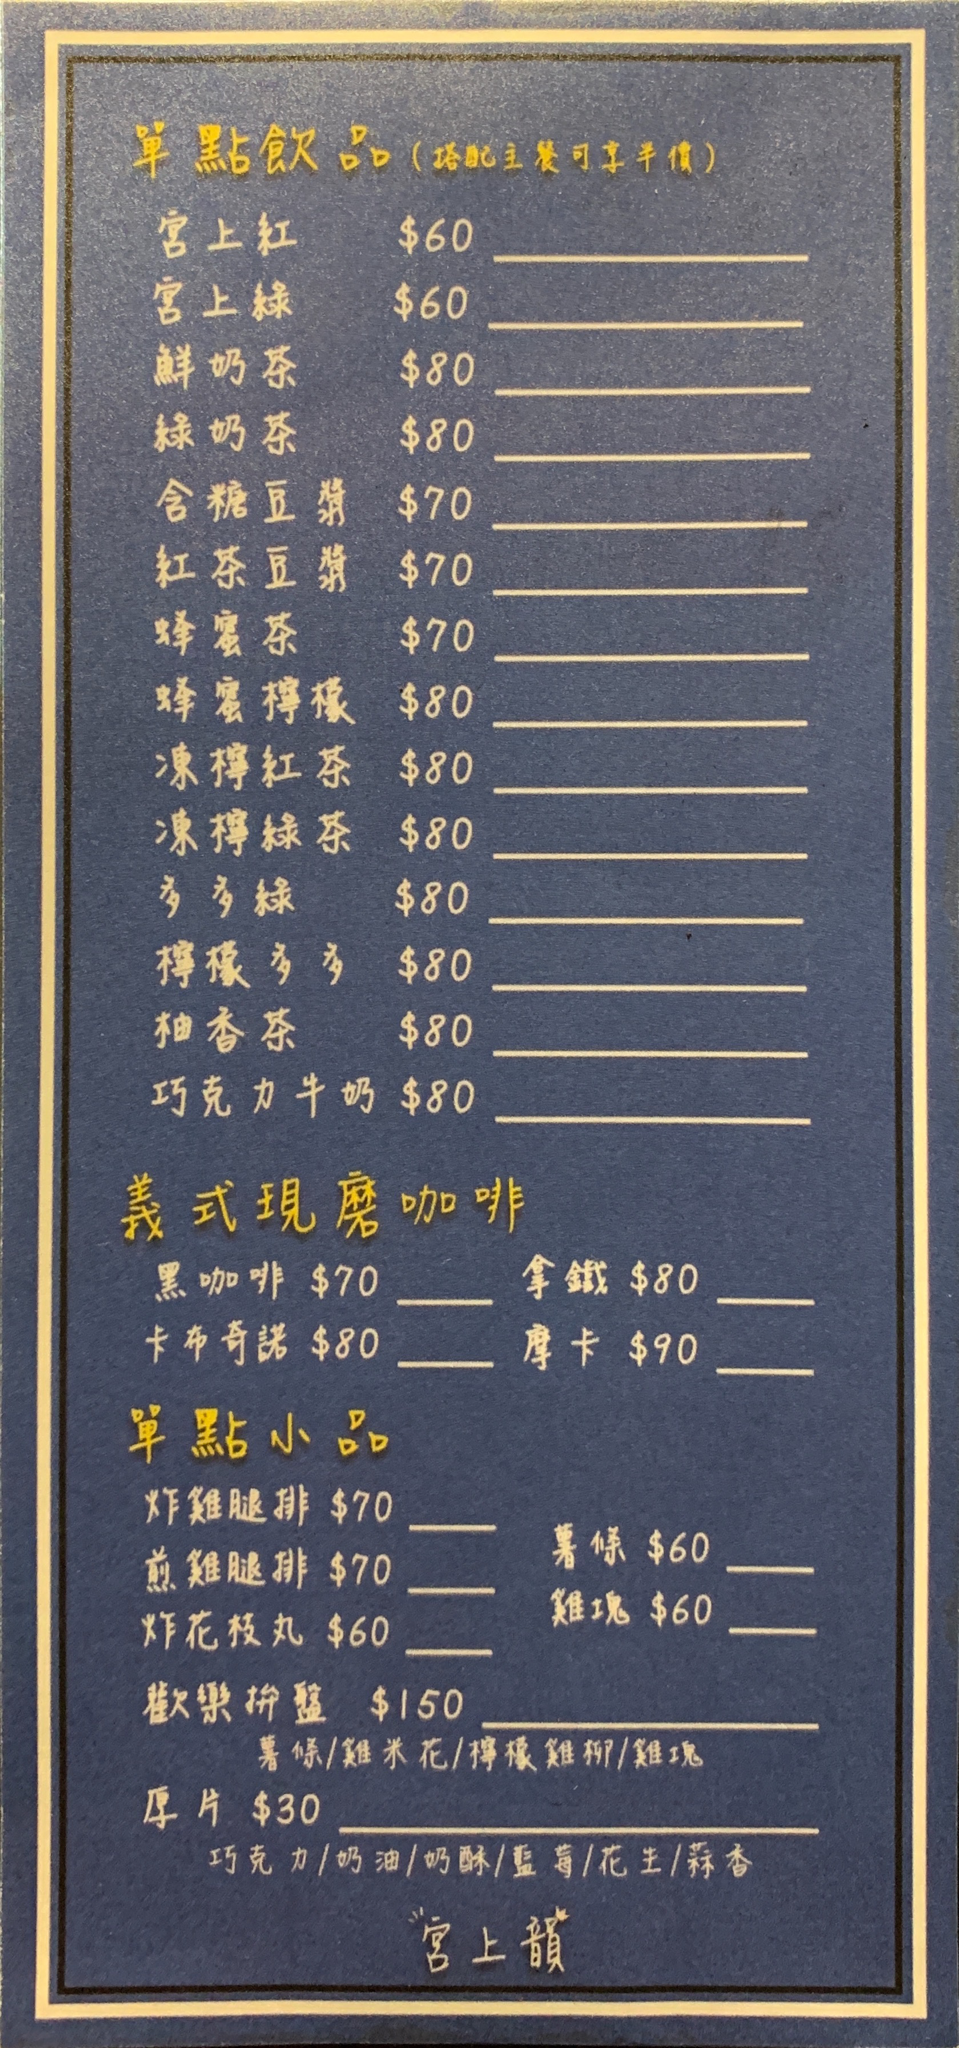 單點飲品(搭配主餐可享半價)
宮上紅 $60
宮上綠 $60
鮮奶茶 $80
綠奶茶 $80
含糖豆漿 $70
紅茶豆漿 $70
蜂蜜茶 $70
蜂蜜檸檬 $80
凍檸紅茶 $80
凍檸綠茶 $80
多多綠 $80
檸檬多多 $80
柚香茶 $80
巧克力牛奶 $80
義式現磨咖啡
黑咖啡 $70 拿鐵 $80
卡布奇諾 $80 摩卡 $90
單點小品
炸雞腿排 $70
薯條 $60
煎雞腿排 $70
雞塊 $60
炸花枝丸 $60
歡樂拚盤 $150
薯條/雞米花/檸檬雞柳/雞塊
厚片 $30
巧克力/奶油/奶酥/藍莓/花生/蒜香
宮上韻